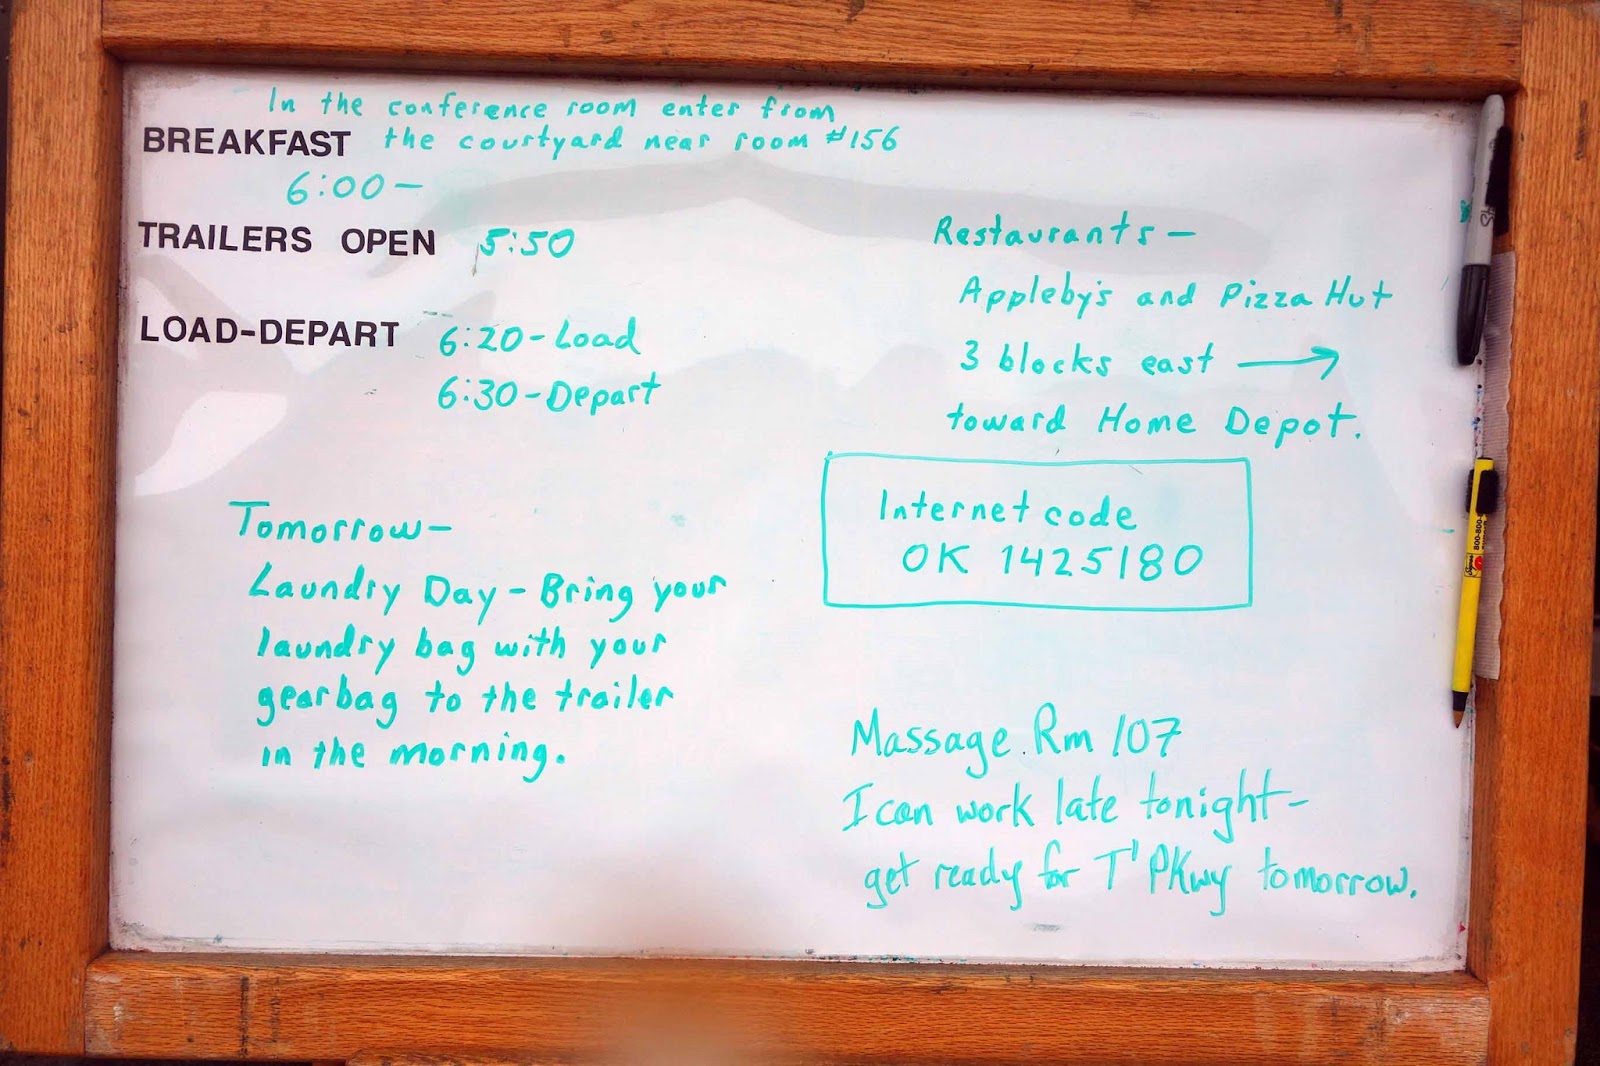 In the conference room enter from
BREAKFAST the courtyard near room #156
6:00—
TRAILERS OPEN 5:50
LOAD-DEPART 6:20-Load
6:30-Depart
Tomorrow—
Laundry Day - Bring your
laundry bag with your
gearbag to the trailer
in the morning.
Restaurants—
Appleby's and Pizza Hut
3 blocks east →
toward Home Depot.
Internet code
OK 1425180
Massage Rm 107
I can work late tonight-
get ready for T' PKwy tomorrow.